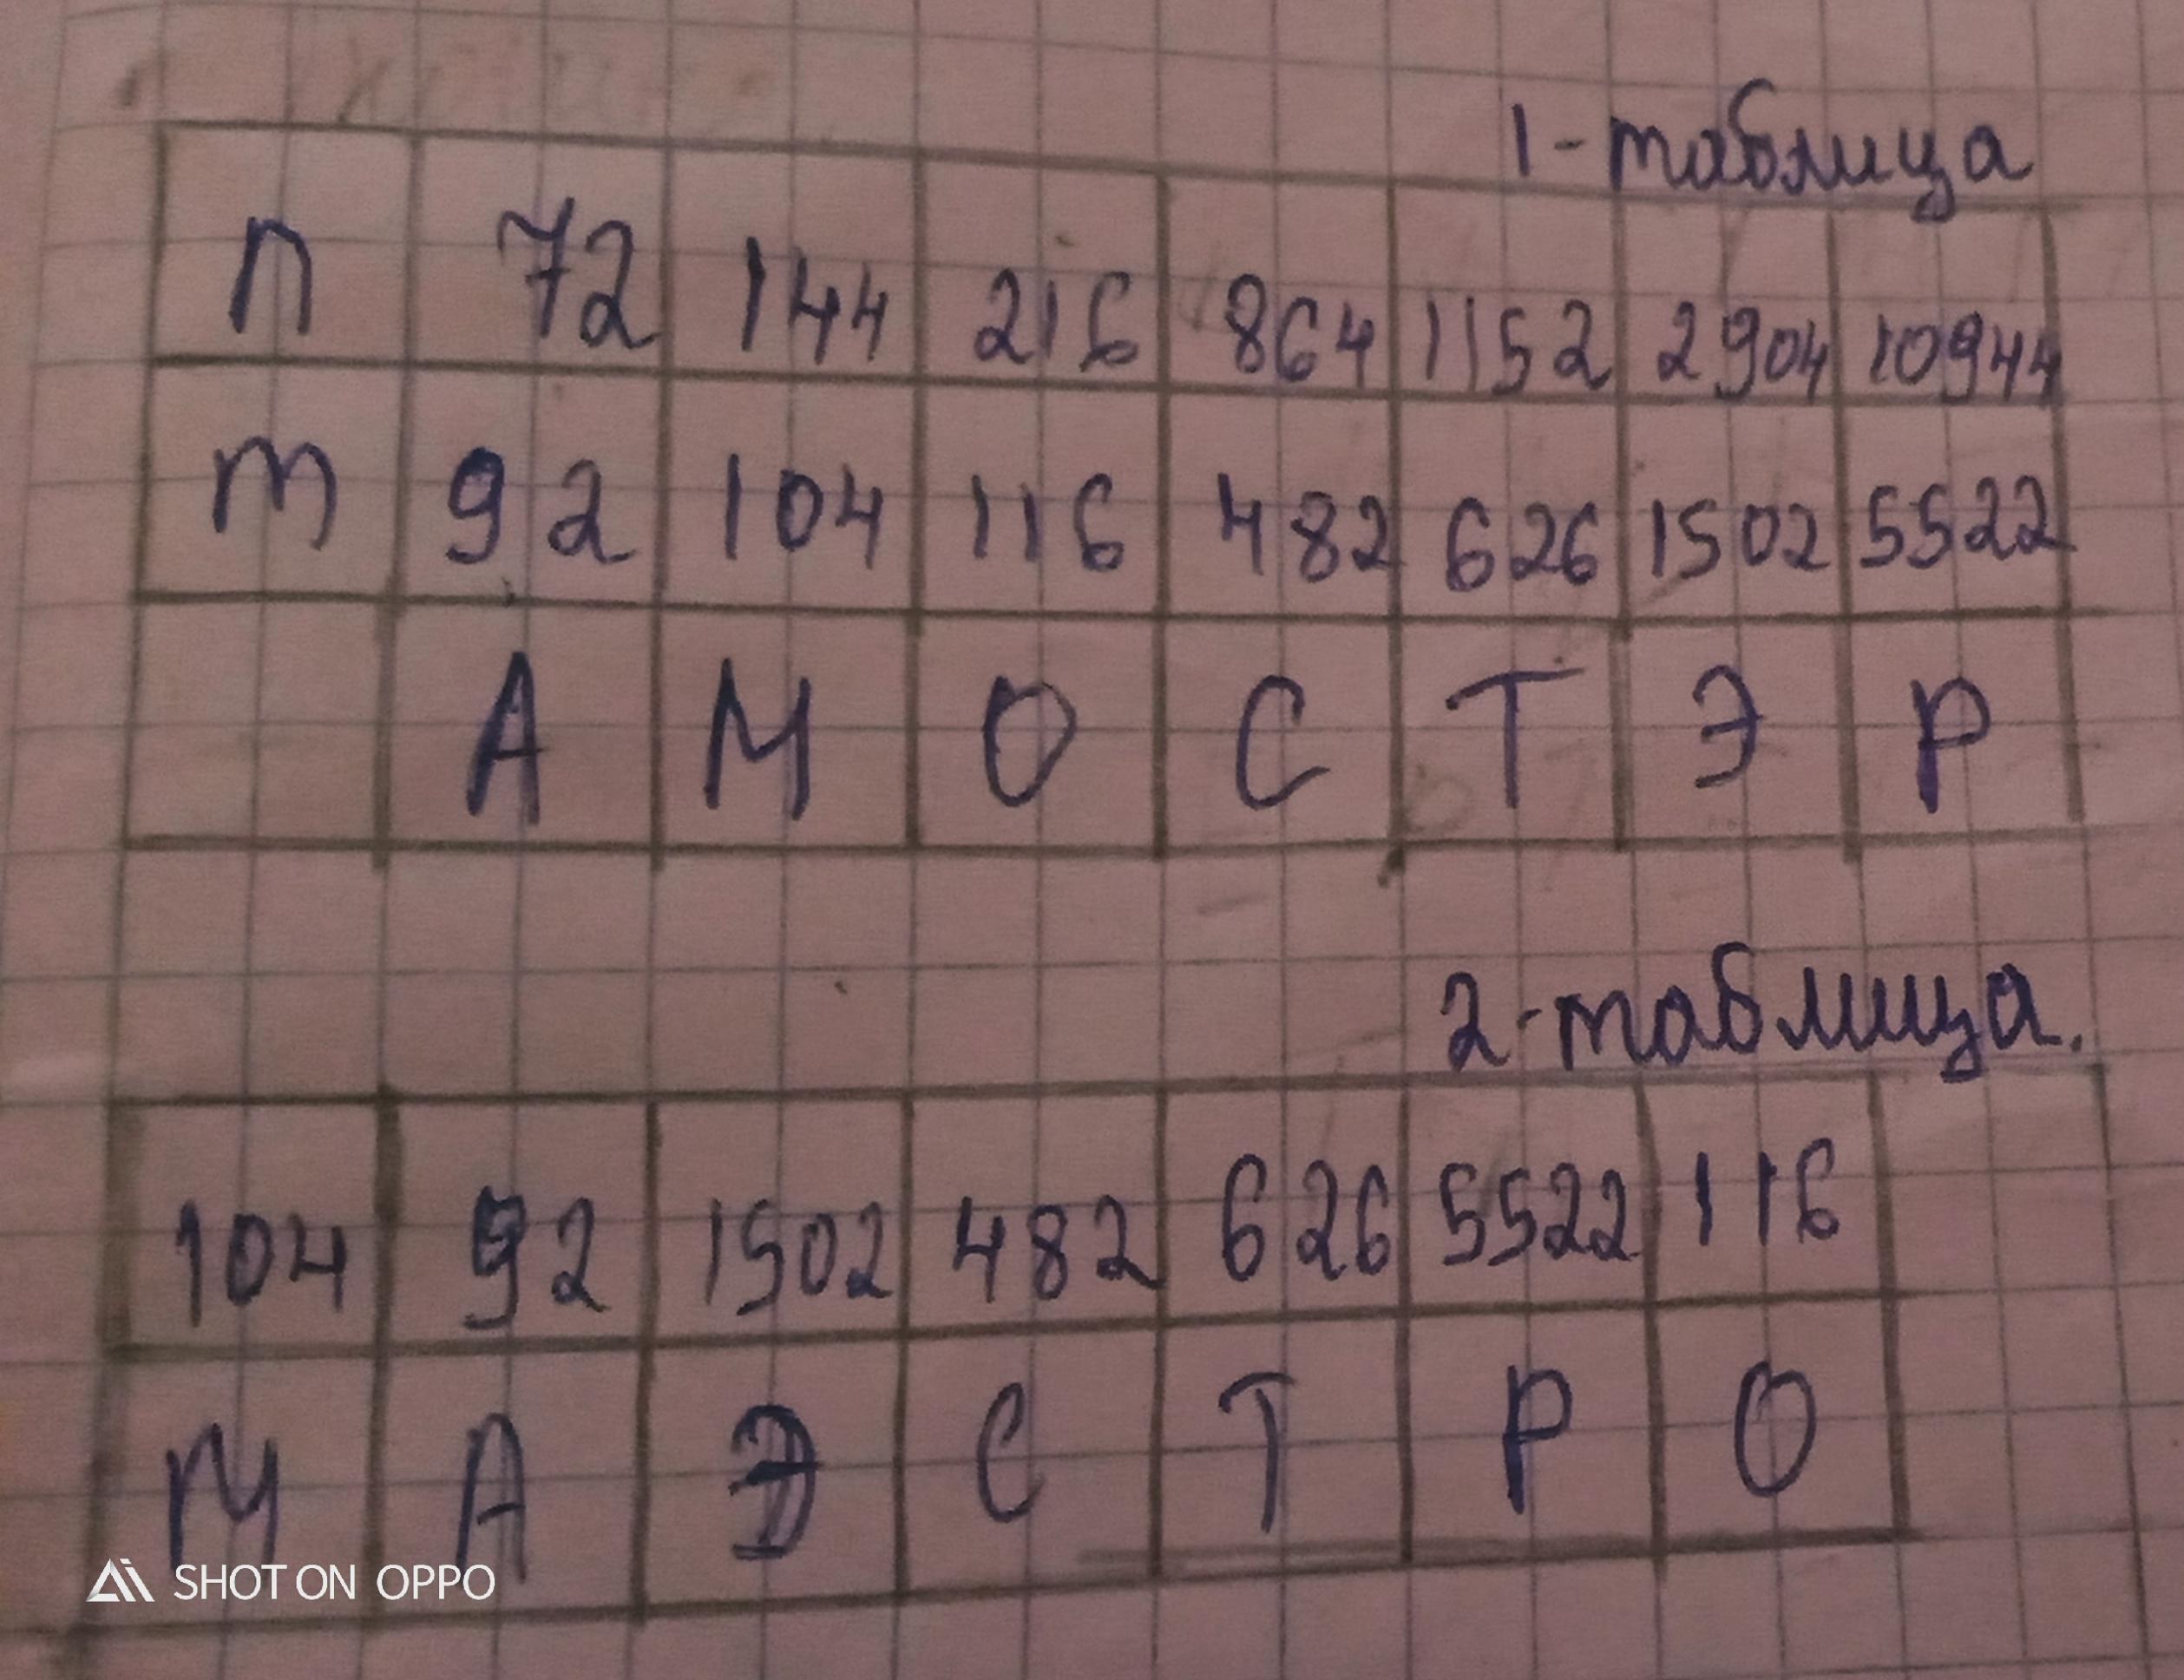 1-таблица
n 72 144 216 864 1152 2904 10944
m 92 104 116 482 626 1502 5522
А М О С Т Э Р
2-таблица.
104 92 1502 482 626 5522 116
М А Э С Т Р О
SHOT ON OPPO